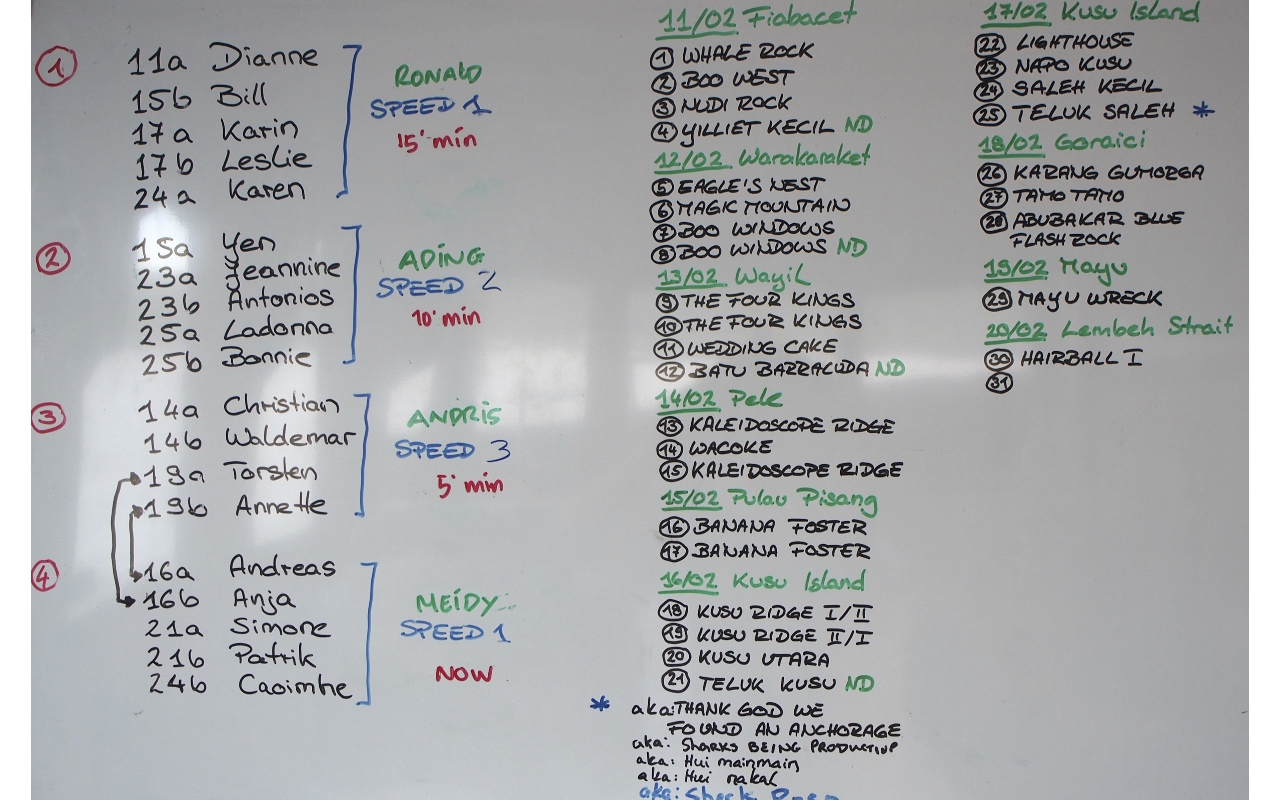 1
11a Dianne
15b Bill
17a Karin
17b Leslie
24a Karen
RONALD
SPEED 1
15' min
2
15a Yen
23a Jeannine
23b Antonios
25a Ladonna
25b Bonnie
ADING
SPEED 2
10' min
3
14a Christian
14b Waldemar
19a Torsten
19b Annette
ANDRIS
SPEED 3
5' min
4
16a Andreas
16b Anja
21a Simone
21b Patrik
24b Caoimhe
MEIDY
SPEED 1
NOW
11/02 Fiabacet
1 WHALE ROCK
2 BOO WEST
3 NUDI ROCK
4 YILLIET KECIL ND
12/02 Warakaraket
5 EAGLE'S NEST
6 MAGIC MOUNTAIN
7 BOO WINDOWS
8 BOO WINDOWS ND
13/02 Wayil
9 THE FOUR KINGS
10 THE FOUR KINGS
11 WEDDING CAKE
12 BATU BARRACUDA ND
14/02 Pele
13 KALEIDOSCOPE RIDGE
14 WACOKE
15 KALEIDOSCOPE RIDGE
15/02 Pulau Pisang
16 BANANA FOSTER
17 BANANA FOSTER
16/02 Kusu Island
18 KUSU RIDGE I/II
19 KUSU RIDGE II/I
20 KUSU UTARA
21 TELUK KUSU ND
* aka: THANK GOD WE
FOUND AN ANCHORAGE
aka: SHARKS BEING PRODUCTIVE
aka: Hui mainmain
aka: Hui nakal
aka: Shark
17/02 Kusu Island
22 LIGHTHOUSE
23 NAPO KUSU
24 SALEH KECIL
25 TELUK SALEH *
18/02 Goraici
26 KARANG GUMORGA
27 TAMO TAMO
28 ABUBAKAR BLUE
FLASH ROCK
19/02 Mayu
29 MAYU WRECK
20/02 Lembeh Strait
30 HAIRBALL I
31